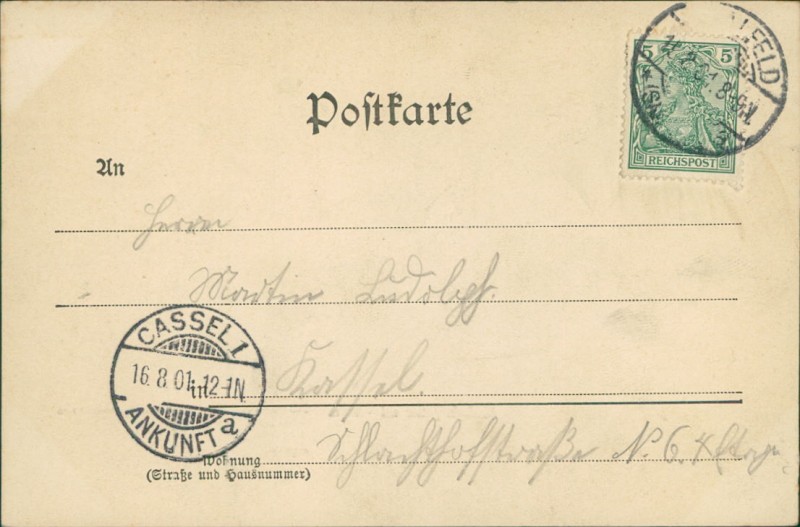 5 5
REICHSPOST
Postkarte
An
Herrn
Martin Ludolph.
CASSEL 1
16.8.01. 12-1N.
ANKUNFT a
in
Kassel.
Schlachthofstraße No 6. 4 Etage
Wohnung
(Straße und Hausnummer)